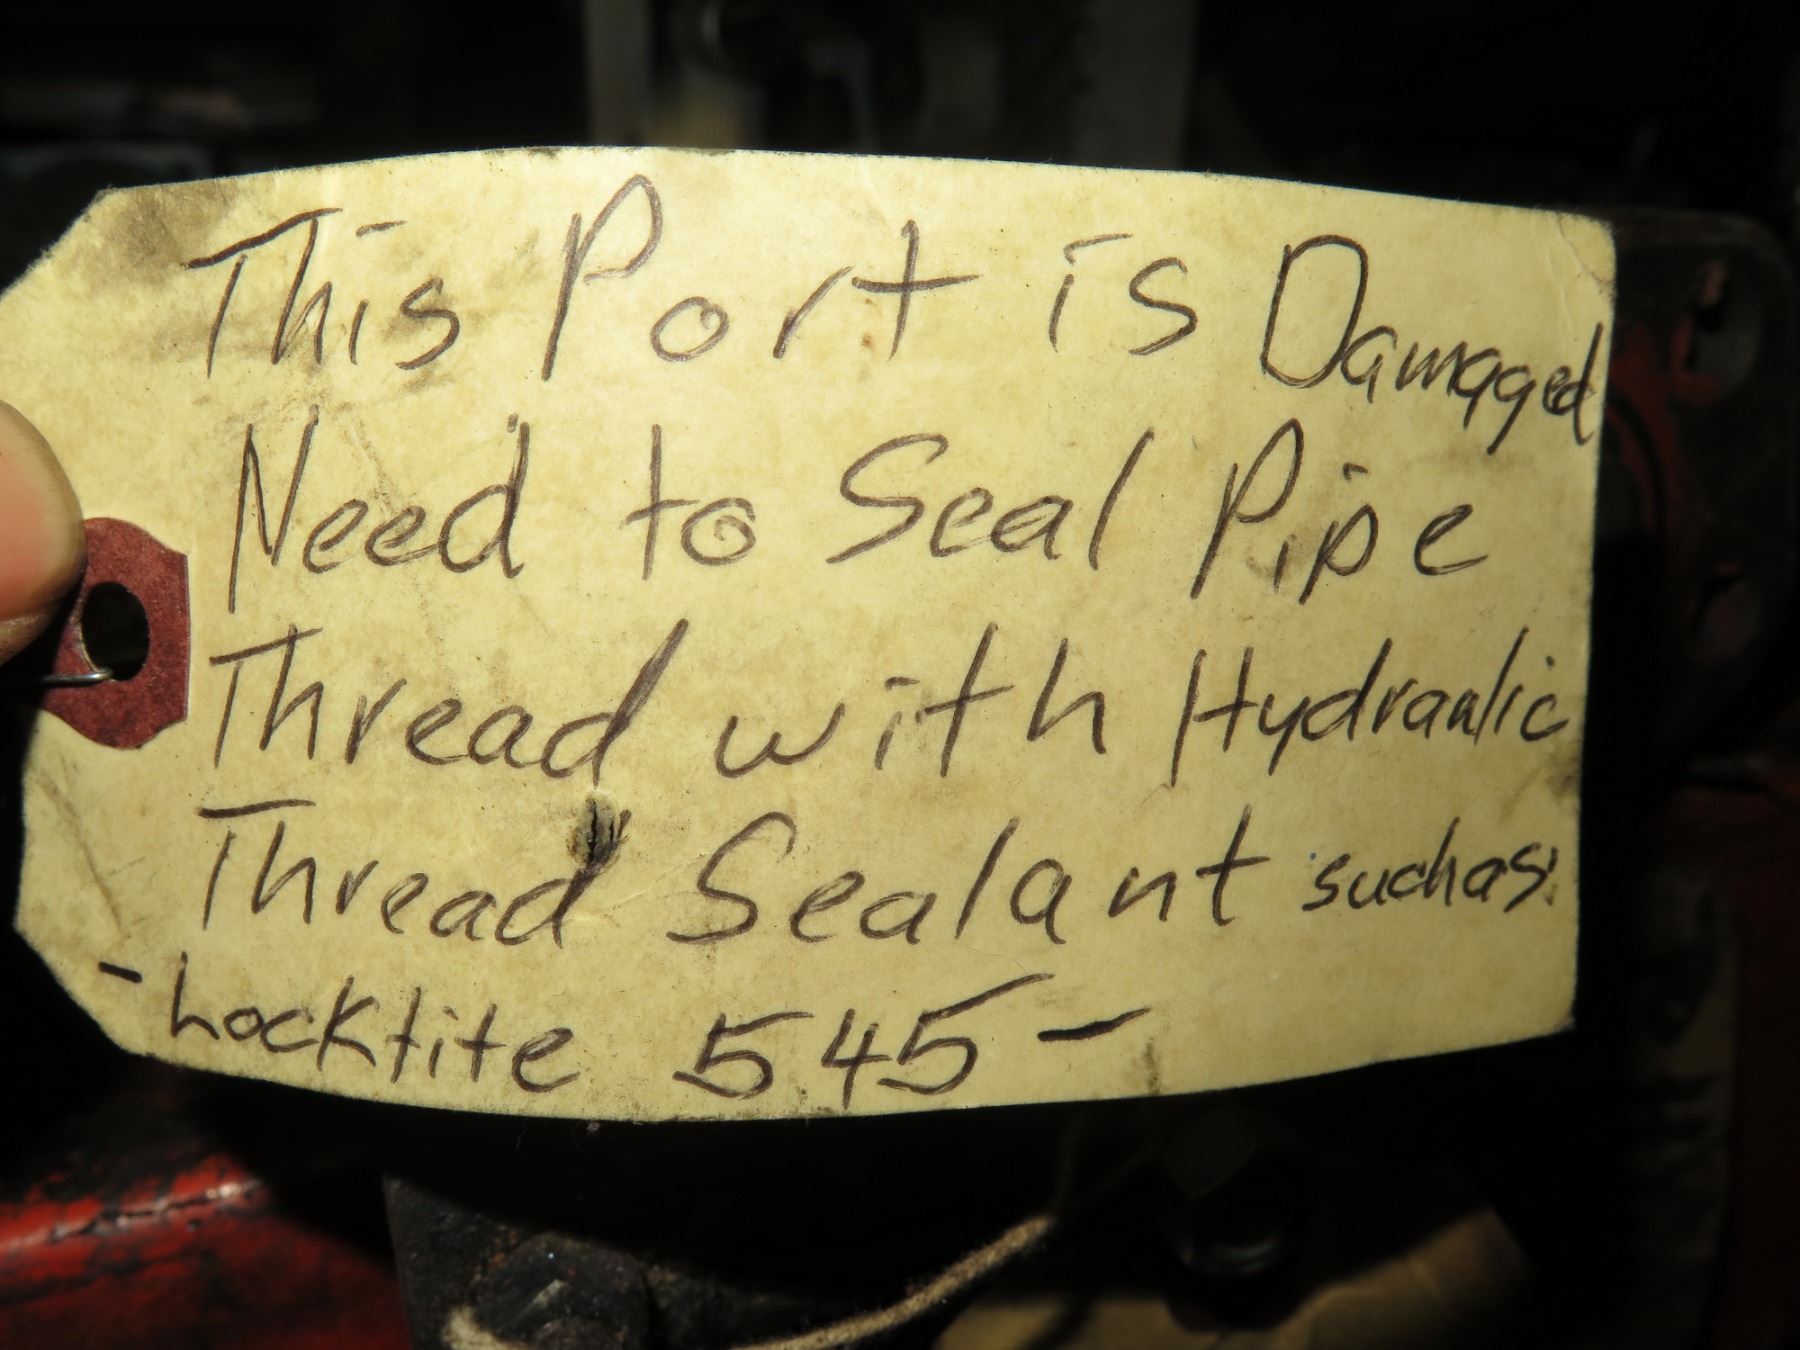 This Port is Damaged
Need to Seal Pipe
Thread with Hydraulic
Thread Sealant such as:
- Locktite 545 -